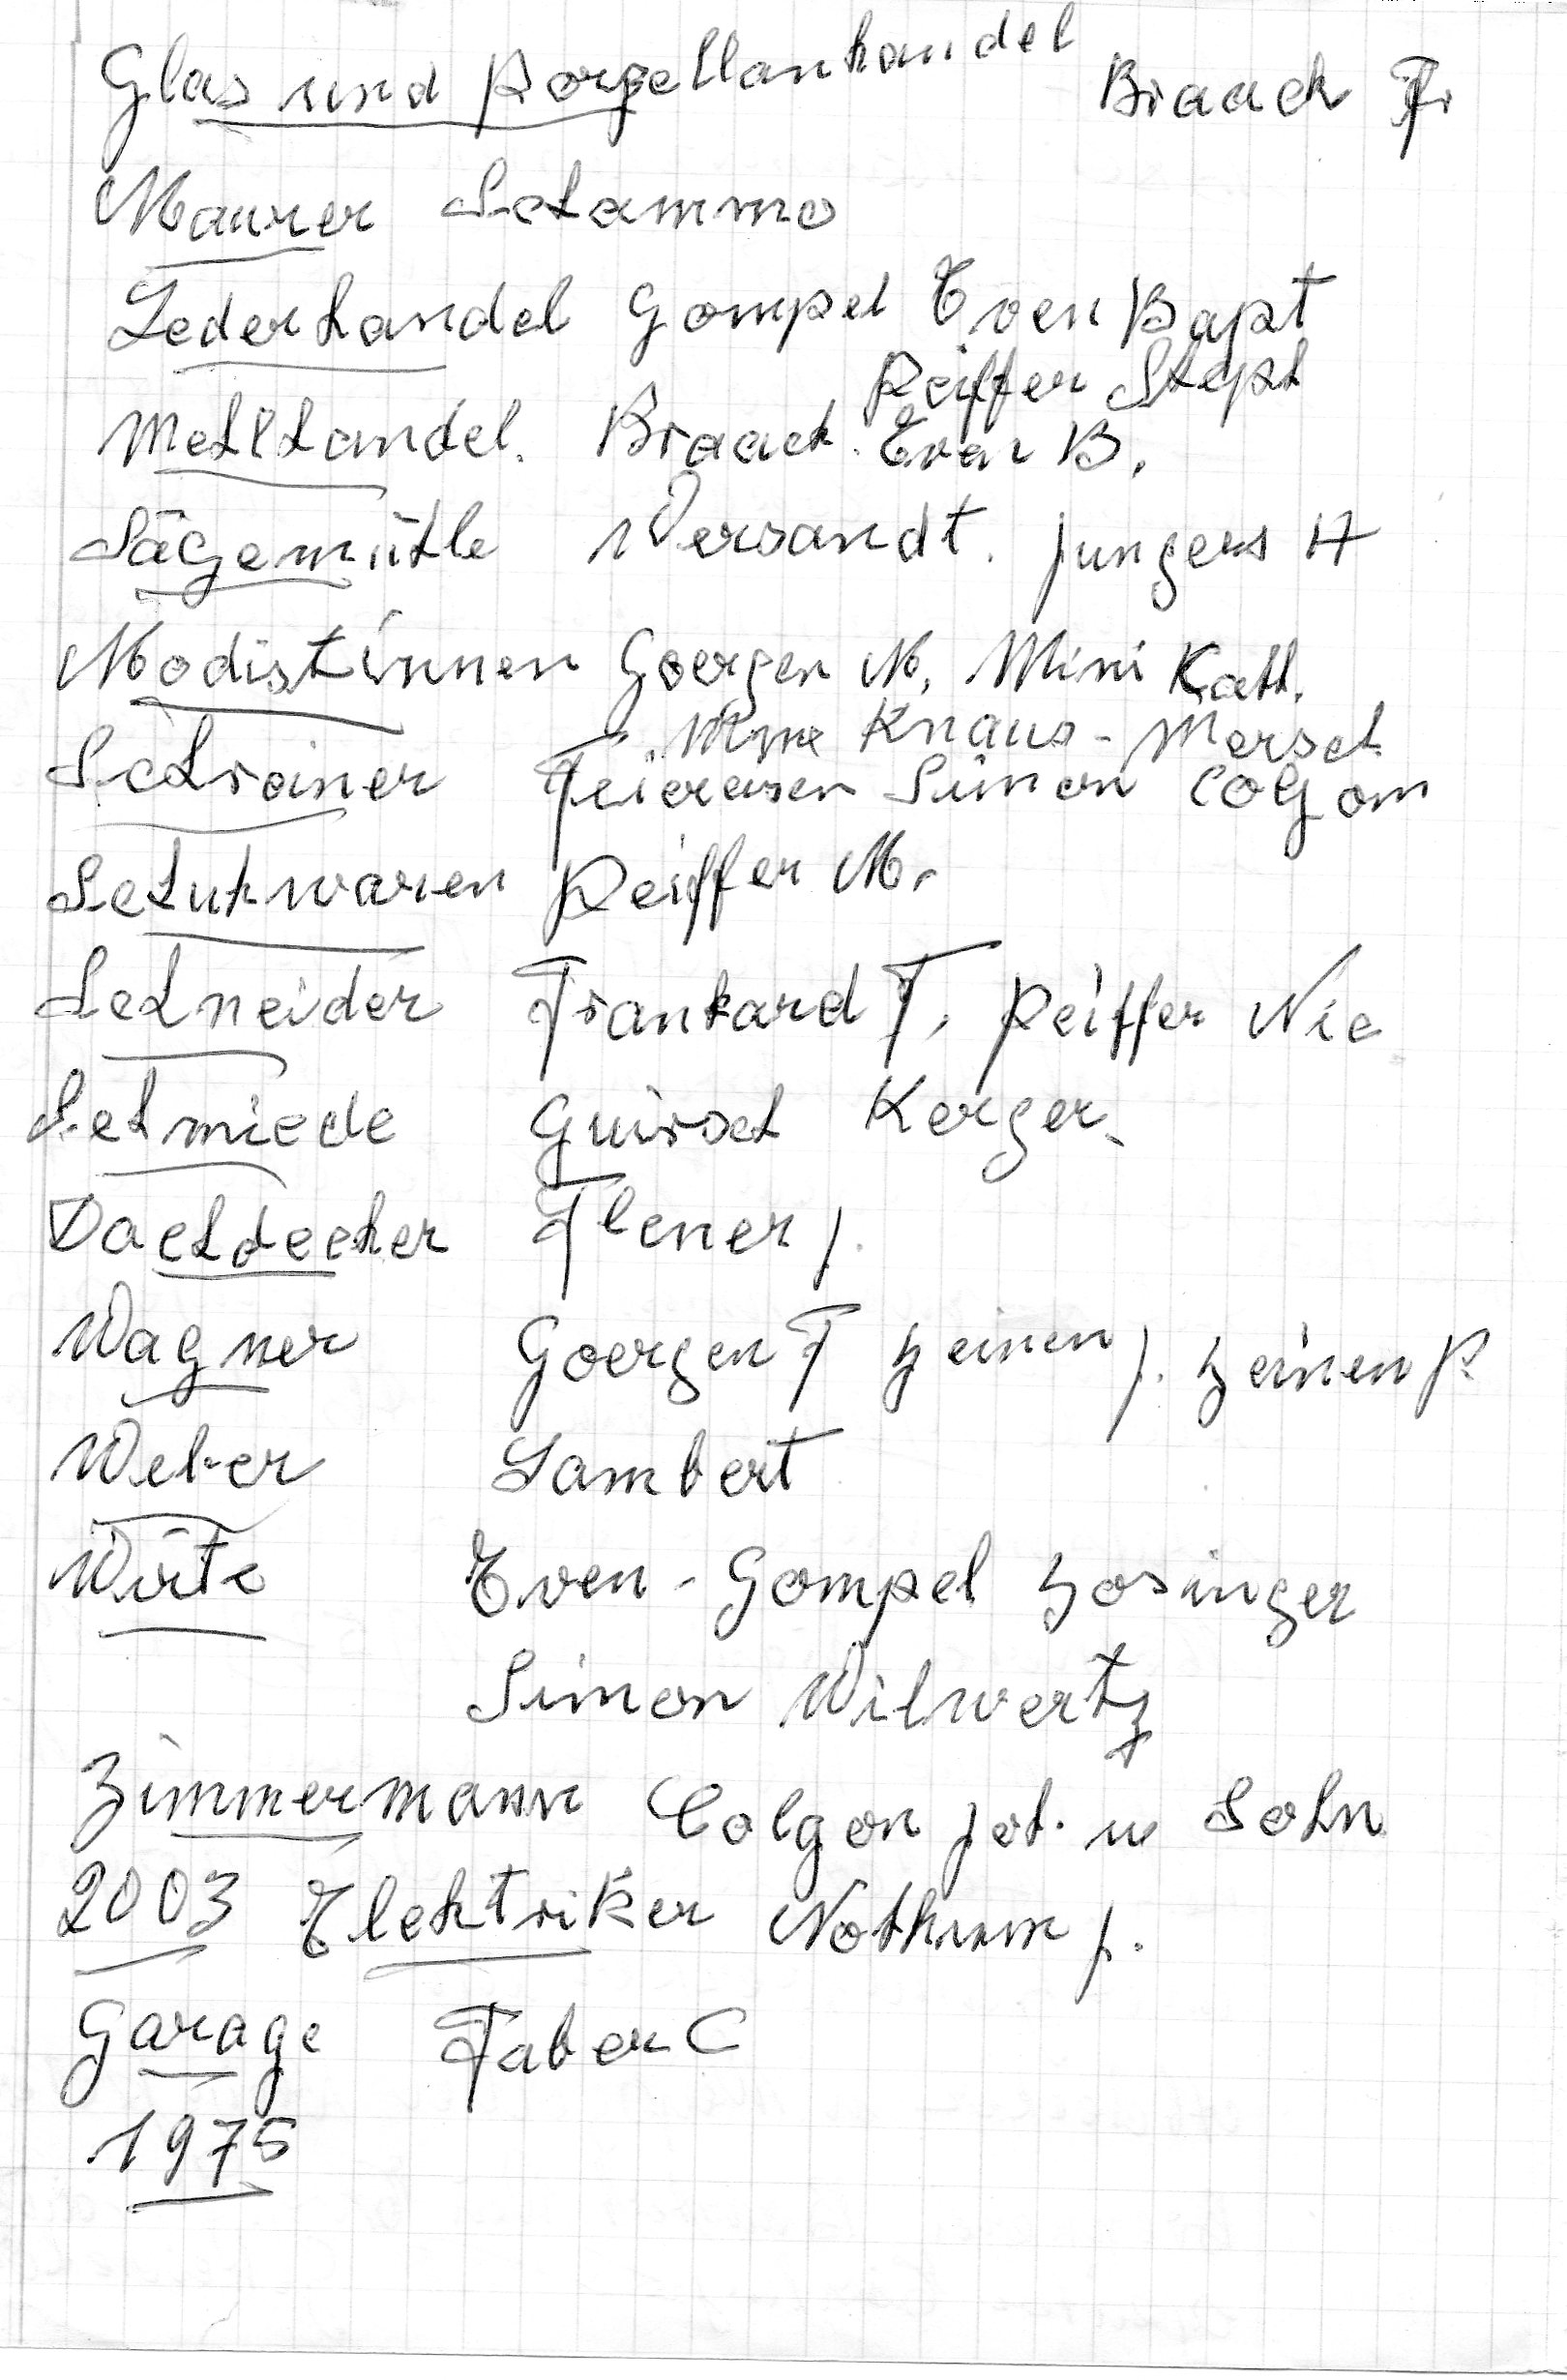 Glas und Porzellanhandel Braack Fr
Maurer Schammo
Lederhandel Gompel Even Bapt
Peiffer Steph
Mehlhandel. Braack. Even B.
Sägemühle Wersandt. Jungers H
Modistinnen Goergen M. Mini Kath.
Mme Knaus - Mersch
Schreiner Feiereisen Simon Colgon
Schuhwaren Peiffer M.
Schneider Frankard F, Peiffer Nic
Schmiede Guirsch Kerger.
Dachdecker Flener J.
Wagner Goergen F Heinen J. Heinen P.
Weber Lambert
Wirte Even - Gompel Hosinger
Simon Wilwertz
Zimmermann Colgon Joh. u Sohn
2003 Elektriker Nothum J.
Garage Faber C
1975